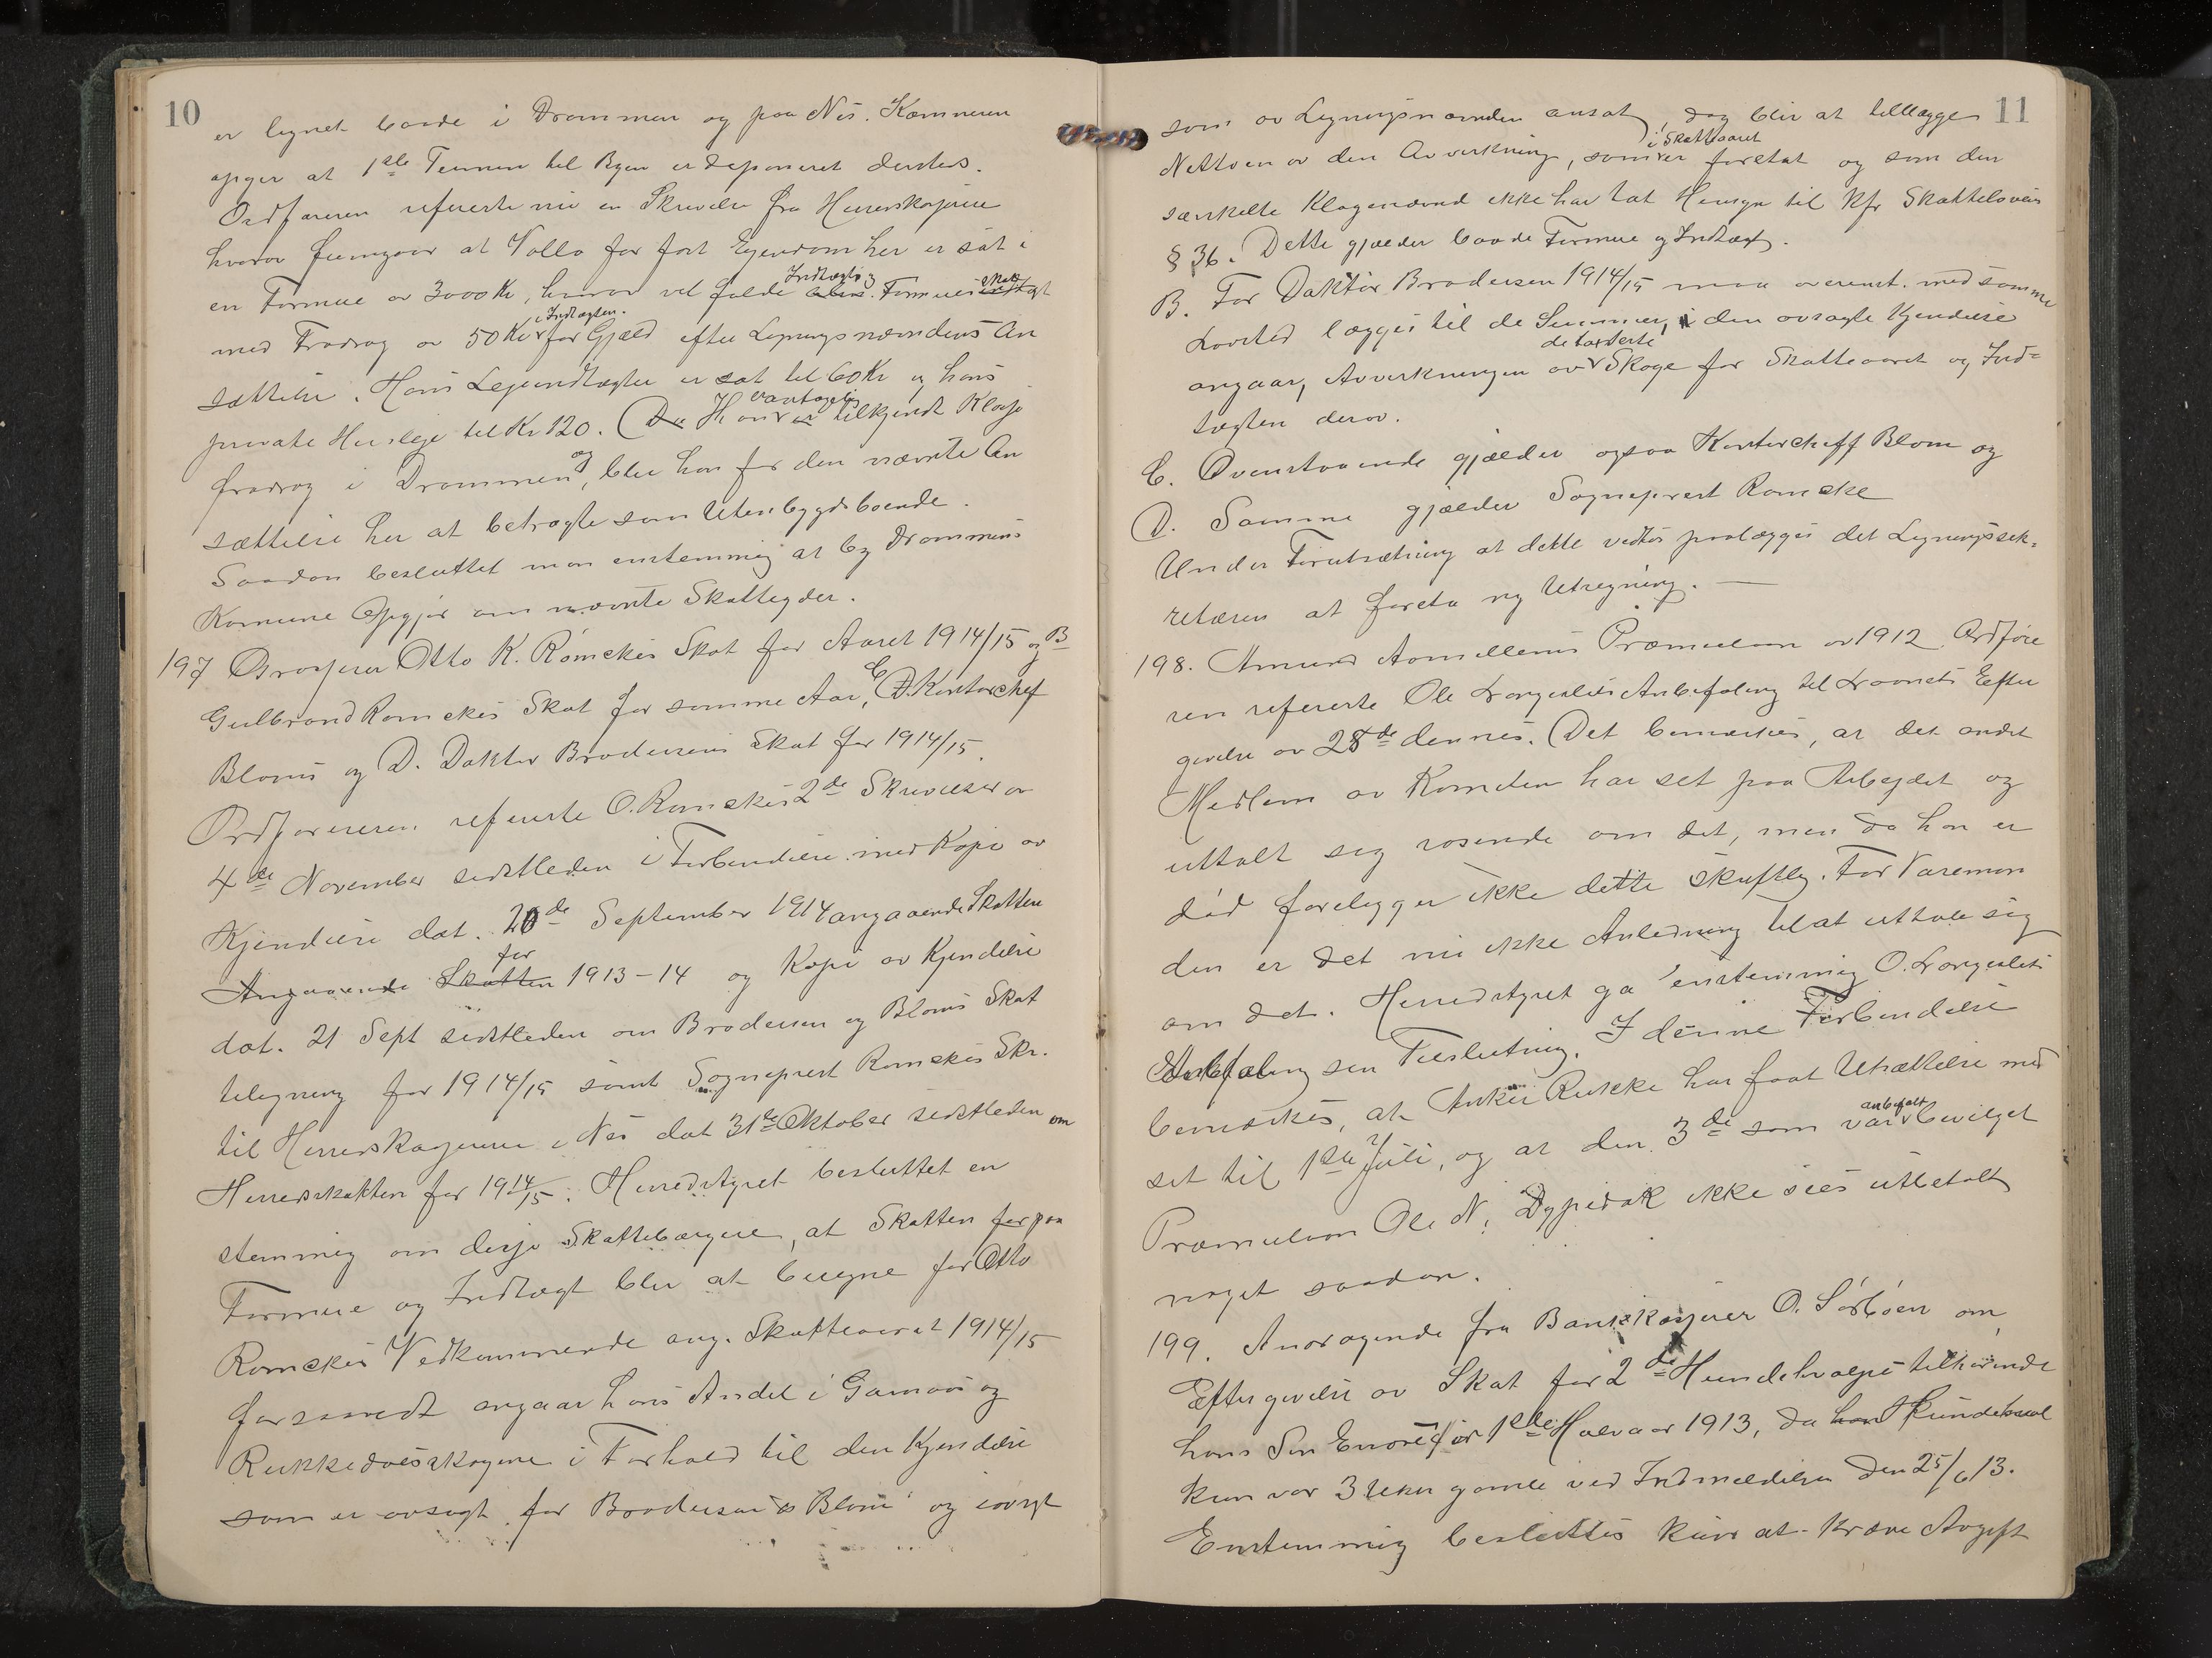 10
er lignet baade i Drammen og paa Nes. Kæmneren
opgir at 1ste Termin til Byen er deponeret dersteds.
Ordføreren refererte nu en Skrivelse fra Herredskasserer
hvorav fremgaar at Vollo for fast Ejendom her er sat i
en Formue av 3000 Kr, hvorav vel falde Indtægts og Formuesskat
med Fradrag av 50 Kr i Indtægten for Gjæld efter Ligningsnævndens An
sættelse. Hans Lejeindtægter er sat til 60 Kr og hans
private Husleje til Kr 120. (Da Han er tilkjendt Klasse
fradrag i Drammen, og blir han for den nævnte An
sættelse her at betragte som Utenbygdsboende.
Saadan besluttet man enstemmig at by Drammens
Komune Opgjør om nævnte Skatteyder.
197 Proprietær Otto K. Rømckes Skat for Aaret 1914/15 og B
Gulbrand Romckes Skat for samme Aar, C D. Kontorchef
Bloms og D. Doktor Brodersens Skat for 1914/15.
Ordføreren refererte O. Romckes 2de Skrivelser av
4de November sidstleden i Forbindelse med Kopi av
Kjendelse dat. 20de September 1914 angaaende Skatten
Angaaende Skatten for 1913-14 og Kopi av Kjendelse
dat. 21 Sept sidstleden om Brodersen og Bloms Skat
teligning for 1914/15 samt Sogneprest Romckes Skr.
til Herredskasseren i Nes dat 31te Oktober sidstleden om
Herredsskatten for 1914/15. Herredstyret besluttet en
stemmig om disse Skatteborgere, at Skatten for paa
Formue og Indtægt blir at beregne for Otto
Romckes Vedkommende ang. Skatteaaret 1914/15
forsaavidt angaar hans Andel i Gamaas og
Rukkedølsskogene i Forhold til den Kjendelse
som er avsagt for Brodersen & Blom og iøvrigt
11
som av Ligningsnævnden ansat, dog blir at tillægge
Nettoen av den Avvirkning, som i Skatteaaret er foretat og som den
særskilte Klagenævnd ikke har tat Hensyn til kfr Skattelovens
§ 36. Dette gjælder baade Formue og Indtægt.
B. For Doktor Brodersen 1914/15 maa overenst. med samme
Lovsted lægges til de Summer, den avsagte Kjendelse
angaar, Avvirkningen av de taxterte Skoge for Skatteaaret og Ind=
tægten derav.
C. Ovenstaaende gjælder ogsaa Kontorcheff Blom og
D. Samme gjælder Sogneprest Romcke
Under Forutsætning at dette vedtas paalægges det Ligningssek=
retæren at foreta ny Utregning. —
198. Amund Præmielaan av 1912. Ordføre
ren refererte Ole Anbefaling til Laanets Efter
givelse av 28de dennes. (Det bemerkes, at det andet
Medlem av Komiteen har set paa Arbejdet og
uttalt sig rosende om det, men da han er
død foreligger ikke dette skriftlig. For Varaman
den er det nu ikke Anledning til at uttale sig
om det. Herredstyret ga enstemmig O.
Anbefaling sin Tilslutning. I denne Forbindelse
bemerkes, at Anker Rukke har faat Utsættelse med
sit til 1ste Juli, og at den 3de som var anbefalt bevilget
Præmielaan Ole N. ikke sees utbetalt
noget saadan.
199. Andragende fra Bankkasserer O. Sørbøen om
Eftergivelse av Skat for 2de Hundehvalpe tilhørende
hans Søn for 1ste Halvaar 1913, da han Hundehval
kun var 3 Uker gamle ved Indmeldelsen den 25/6 13.
Enstemmig besluttes kun at kræve Avgift